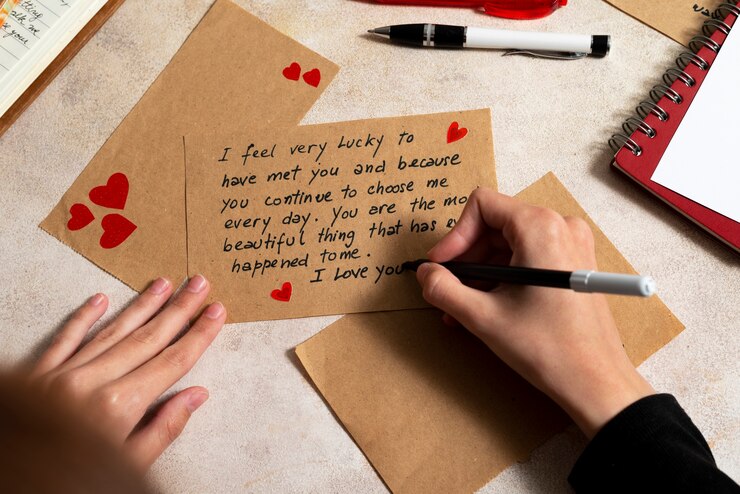 I feel very Lucky to
have met you and because
you continue to choose me
every day. You are the
beautiful thing that has
happened to me.
I Love you